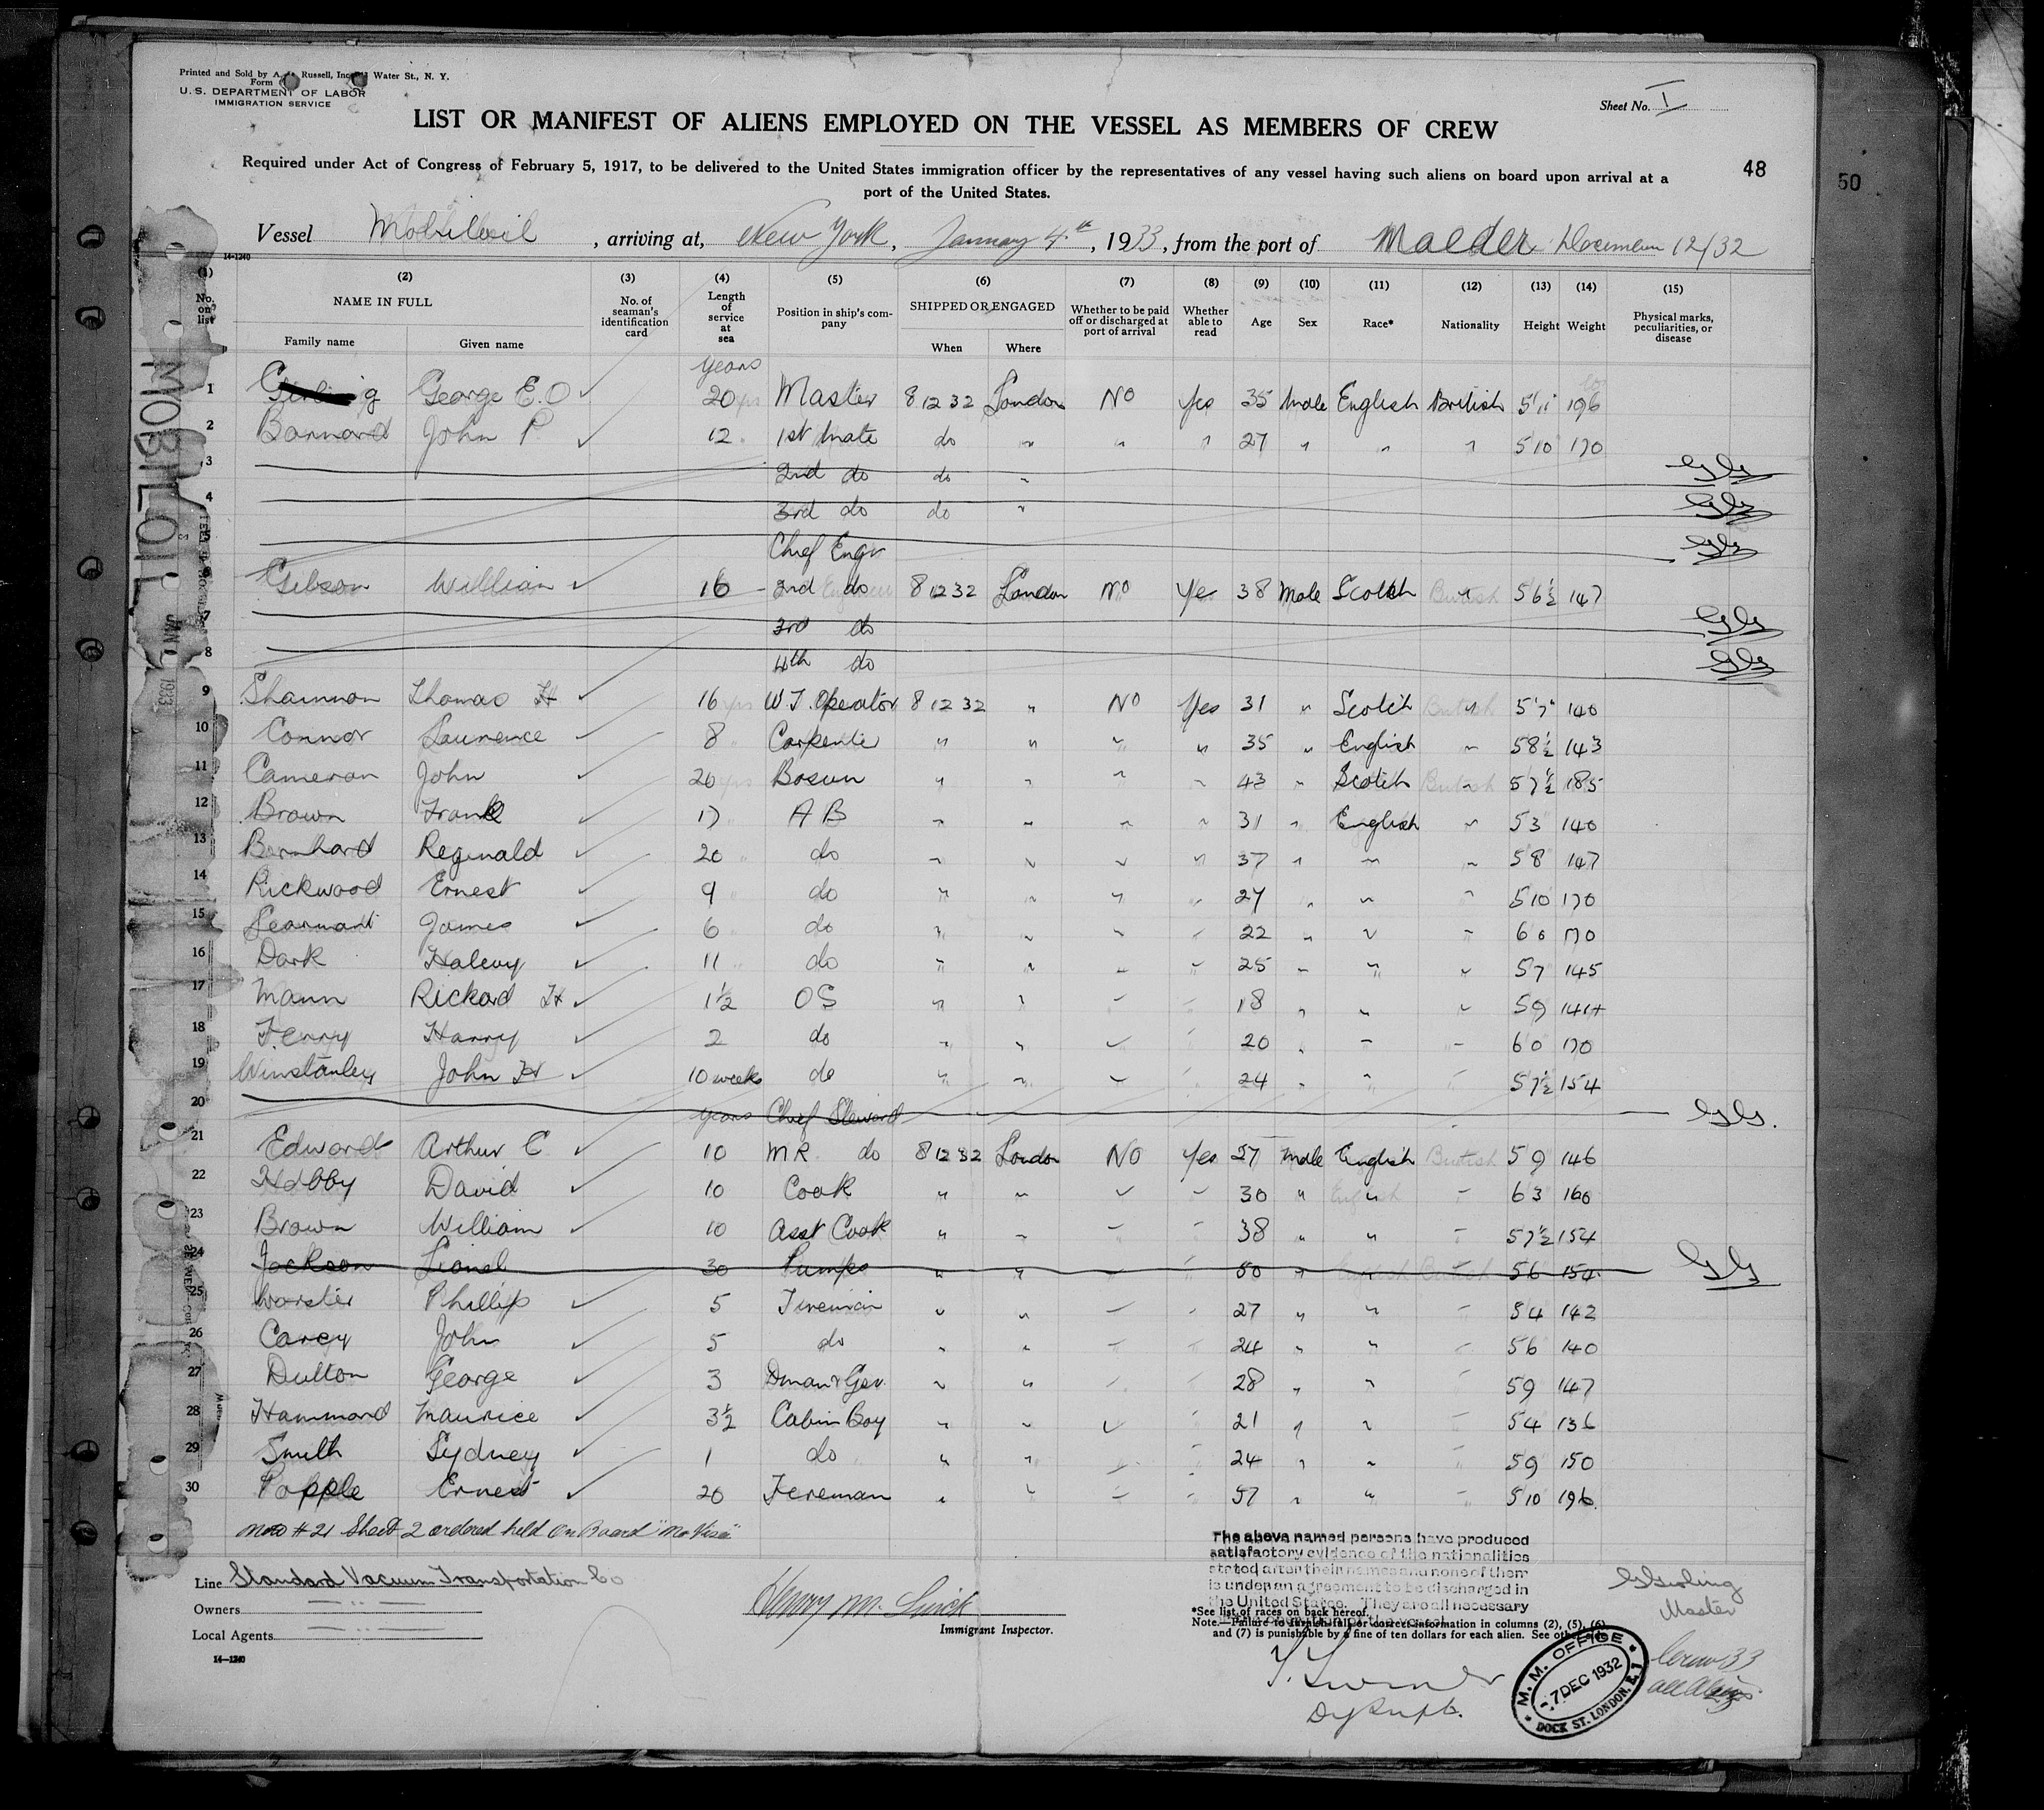 Printed and Sold by A. Russell, Inc. Water St., N. Y.
Form
U. S. DEPARTMENT OF LABOR
IMMIGRATION SERVICE
Sheet No. I
LIST OR MANIFEST OF ALIENS EMPLOYED ON THE VESSEL AS MEMBERS OF CREW
Required under Act of Congress of February 5, 1917, to be delivered to the United States immigration officer by the representatives of any vessel having such aliens on board upon arrival at a
port of the United States.
48
50
Vessel Mobiloil, arriving at, New York, January 4th, 1933, from the port of December 12/32
14-1240
(1) (2) (3) (4) (5) (6) (7) (8) (9) (10) (11) (12) (13) (14) (15)
No. on list NAME IN FULL Family name Given name No. of seaman's identification card Length of service at sea Position in ship's company SHIPPED OR ENGAGED When Where Whether to be paid off or discharged at port of arrival Whether able to read Age Sex Race* Nationality Height Weight Physical marks, peculiarities, or disease
years
1 George E. O 20 Master 8 12 32 London No Yes 35 Male English British 5 11 196
2 Barnard John P 12 1st Mate do " " " 27 " " " 5 10 170
3 2nd do do " GG
4 3rd do do " GG
5 Chief Engr GG
6 Gibson William 16 2nd do 8 12 32 London No Yes 38 Male Scotch " 5 6½ 147
7 3rd do GG
8 4th do GG
9 Shannon Thomas H 16 W.T. Operator 8 12 32 " No Yes 31 " Scotch " 5 7 140
10 Connor Laurence 8 Carpenter " " " " 35 " English " 5 8½ 143
11 Cameron John 20 Bosun " " " " 43 " Scotch " 5 7½ 185
12 Brown Frank 17 A B " " " " 31 " English " 5 3 140
13 Barnhard Reginald 20 do " " " " 37 " " " 5 8 147
14 Rickwood Ernest 9 do " " " " 27 " " " 5 10 170
15 James 6 do " " " " 22 " " " 6 0 170
16 Dark 11 do " " " " 25 " " " 5 7 145
17 Mann Rickard H 1½ OS " " " " 18 " " " 5 9 144
18 Harry 2 do " " " " 20 " " " 6 0 170
19 Winstanley John H 10 weeks do " " " " 24 " " " 5 7½ 154
20 years Chief Steward GG.
21 Edward Arthur C 10 M R do 8 12 32 London No Yes Male English British 5 9 146
22 Hobby David 10 Cook " " " " 30 " " " 6 3 160
23 Brown William 10 Asst Cook " " " " 38 " " " 5 7½ 154
24 Jackson Lionel 30 Pumps " " " " 50 " " " 5 6 154 GG
25 Phillip 5 Fireman " " " " 27 " " " 5 4 142
26 Carey John 5 do " " " " 24 " " " 5 6 140
27 Dutton George 3 " " " " 28 " " " 5 9 147
28 Hammond Maurice 3½ Cabin Boy " " " " 21 " " " 5 4 136
29 Smith Sydney 1 do " " " " 24 " " " 5 9 150
30 Popple Ernest 20 Fireman " " " " 57 " " " 5 10 196
# 21 Sheet 2 ordered held on Board "No Visa"
MOBILOIL
JAN 1933
The above named persons have produced
satisfactory evidence of the nationalities
stated after their names and none of them
is under an agreement to be discharged in
the United States. They are all necessary
Line Standard Vacuum Transportation Co
Owners
Local Agents
14-1240
Immigrant Inspector.
*See list of races on back hereof.
Note.—Failure to furnish full or correct information in columns (2), (5), (6)
and (7) is punishable by a fine of ten dollars for each alien. See other side
GGirling
Master
M. M. OFFICE
-7 DEC 1932
DOCK ST. LONDON. E. 1
Crew 33
all Aliens